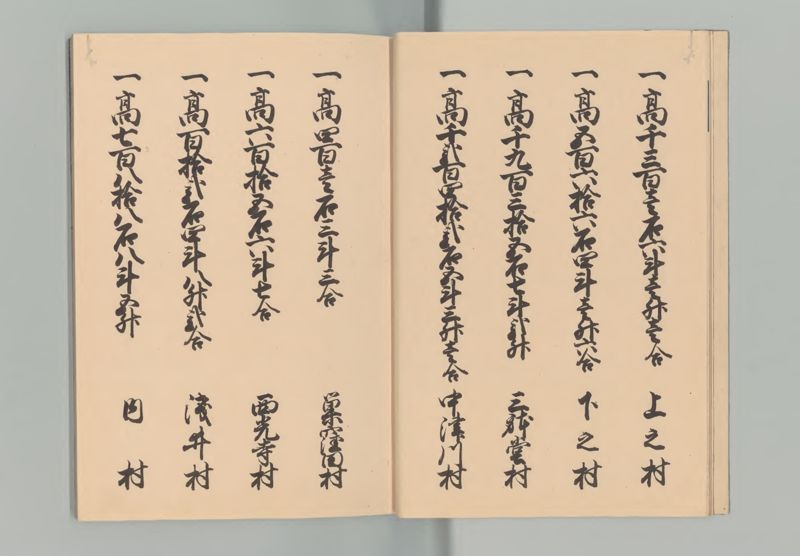 一高千三百壱石六斗壱升壱合 上之村
一高五百六拾六石四斗壱升六合 下之村
一高千九百三拾五石七斗弐升 三ケ尻堂村
一高千弐百四拾弐石五斗三升壱合 中津川村
一高四百壱石三斗三合 巣窪田村
一高六百拾五石六斗七合 西光寺村
一高百拾弐石四斗八升弐合 浅井村
一高七百八拾八石八斗五升 円村